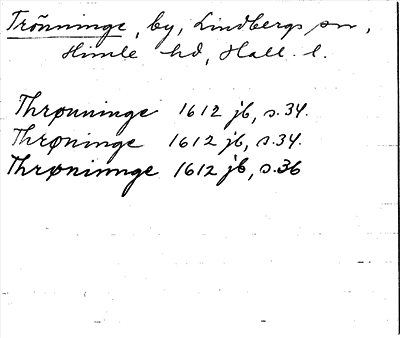 Trönninge, by, Lindbergs sn,
Himle hd, Hall. l.
Thrønninge 1612 jb, s. 34.
Thrøninge 1612 jb, s. 34.
Thrøninnge 1612 jb, s. 36